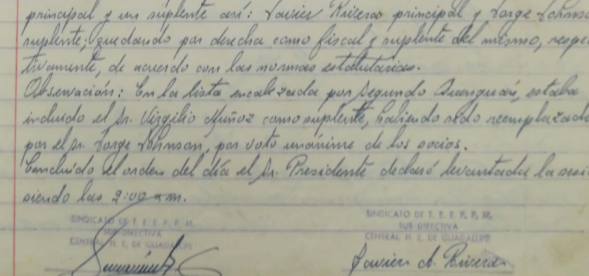 principal y un suplente así: Javier Rivera principal y Jorge Johnson
suplente; quedando por derecha como fiscal y suplente del mismo, respec
tivamente, de acuerdo con las normas estatutarias.
Observación: En la lista encabezada por Segundo Quenguán, estaba
incluido el Sr. Virgilio Muñoz como suplente, habiendo sido reemplazado
por el sr. Jorge Johnson, por voto unánime de los socios.
Concluido el orden del día el Sr. Presidente declaró levantada la sesi
siendo las 2:00 am.
SINDICATO DE T. E. E. P. M. SINDICATO DE T. E. E. P. M.
SUB DIRECTIVA SUB DIRECTIVA
CENTRAL H. E. DE GUADALUPE CENTRAL H. E. DE GUADALUPE
Javier A. Rivera